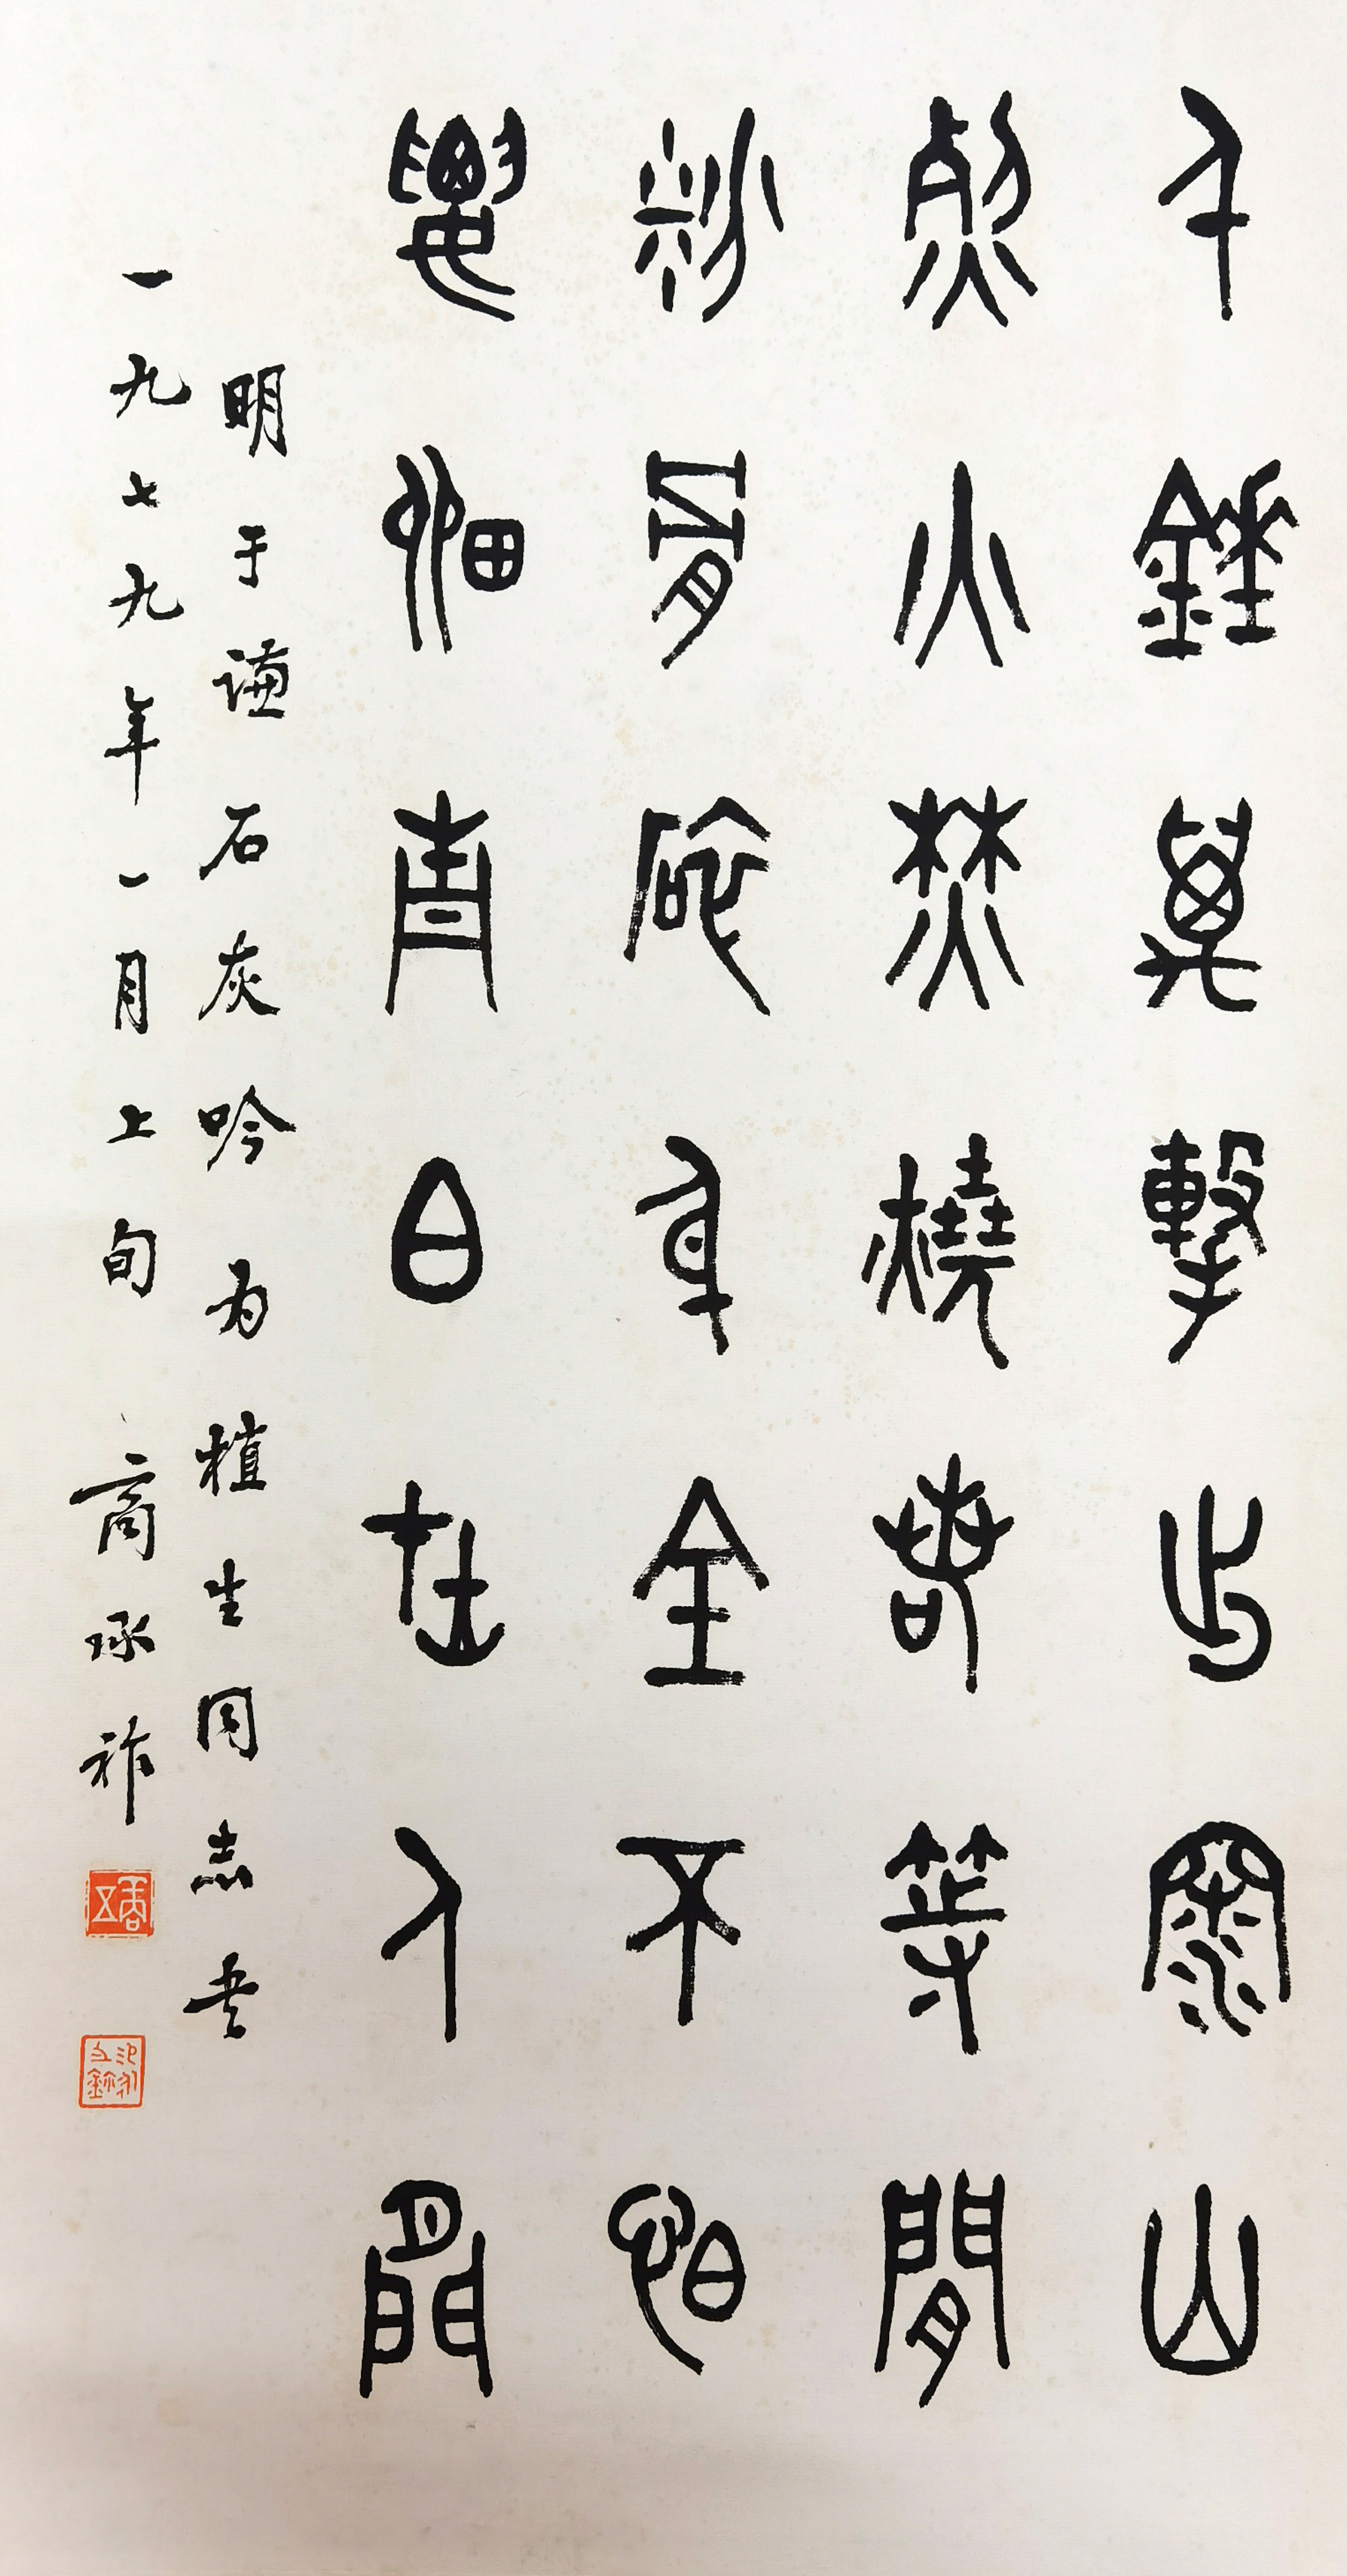 千錘萬擊出深山
烈火焚燒若等閒
粉骨碎身全不怕
要留青白在人閒
明于谦石灰吟为植生同志书
一九七九年一月上旬 商承祚